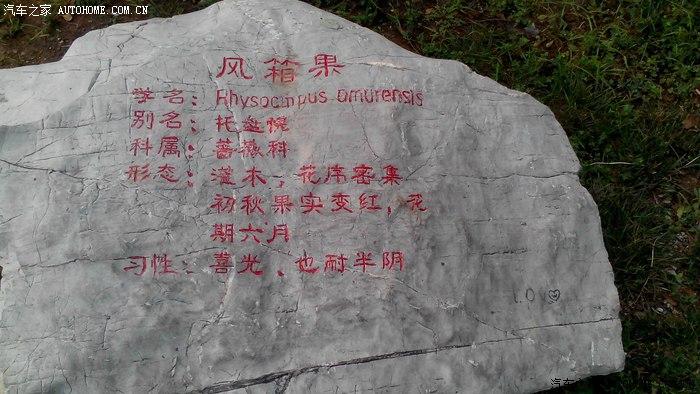 汽车之家 AUTOHOME.COM.CN
风箱果
学名：Rhysocinpus omurensis
别名：托盘幌
科属：蔷薇科
形态：灌木，花序密集
初秋果实变红，花
期六月
习性：喜光、也耐半阴